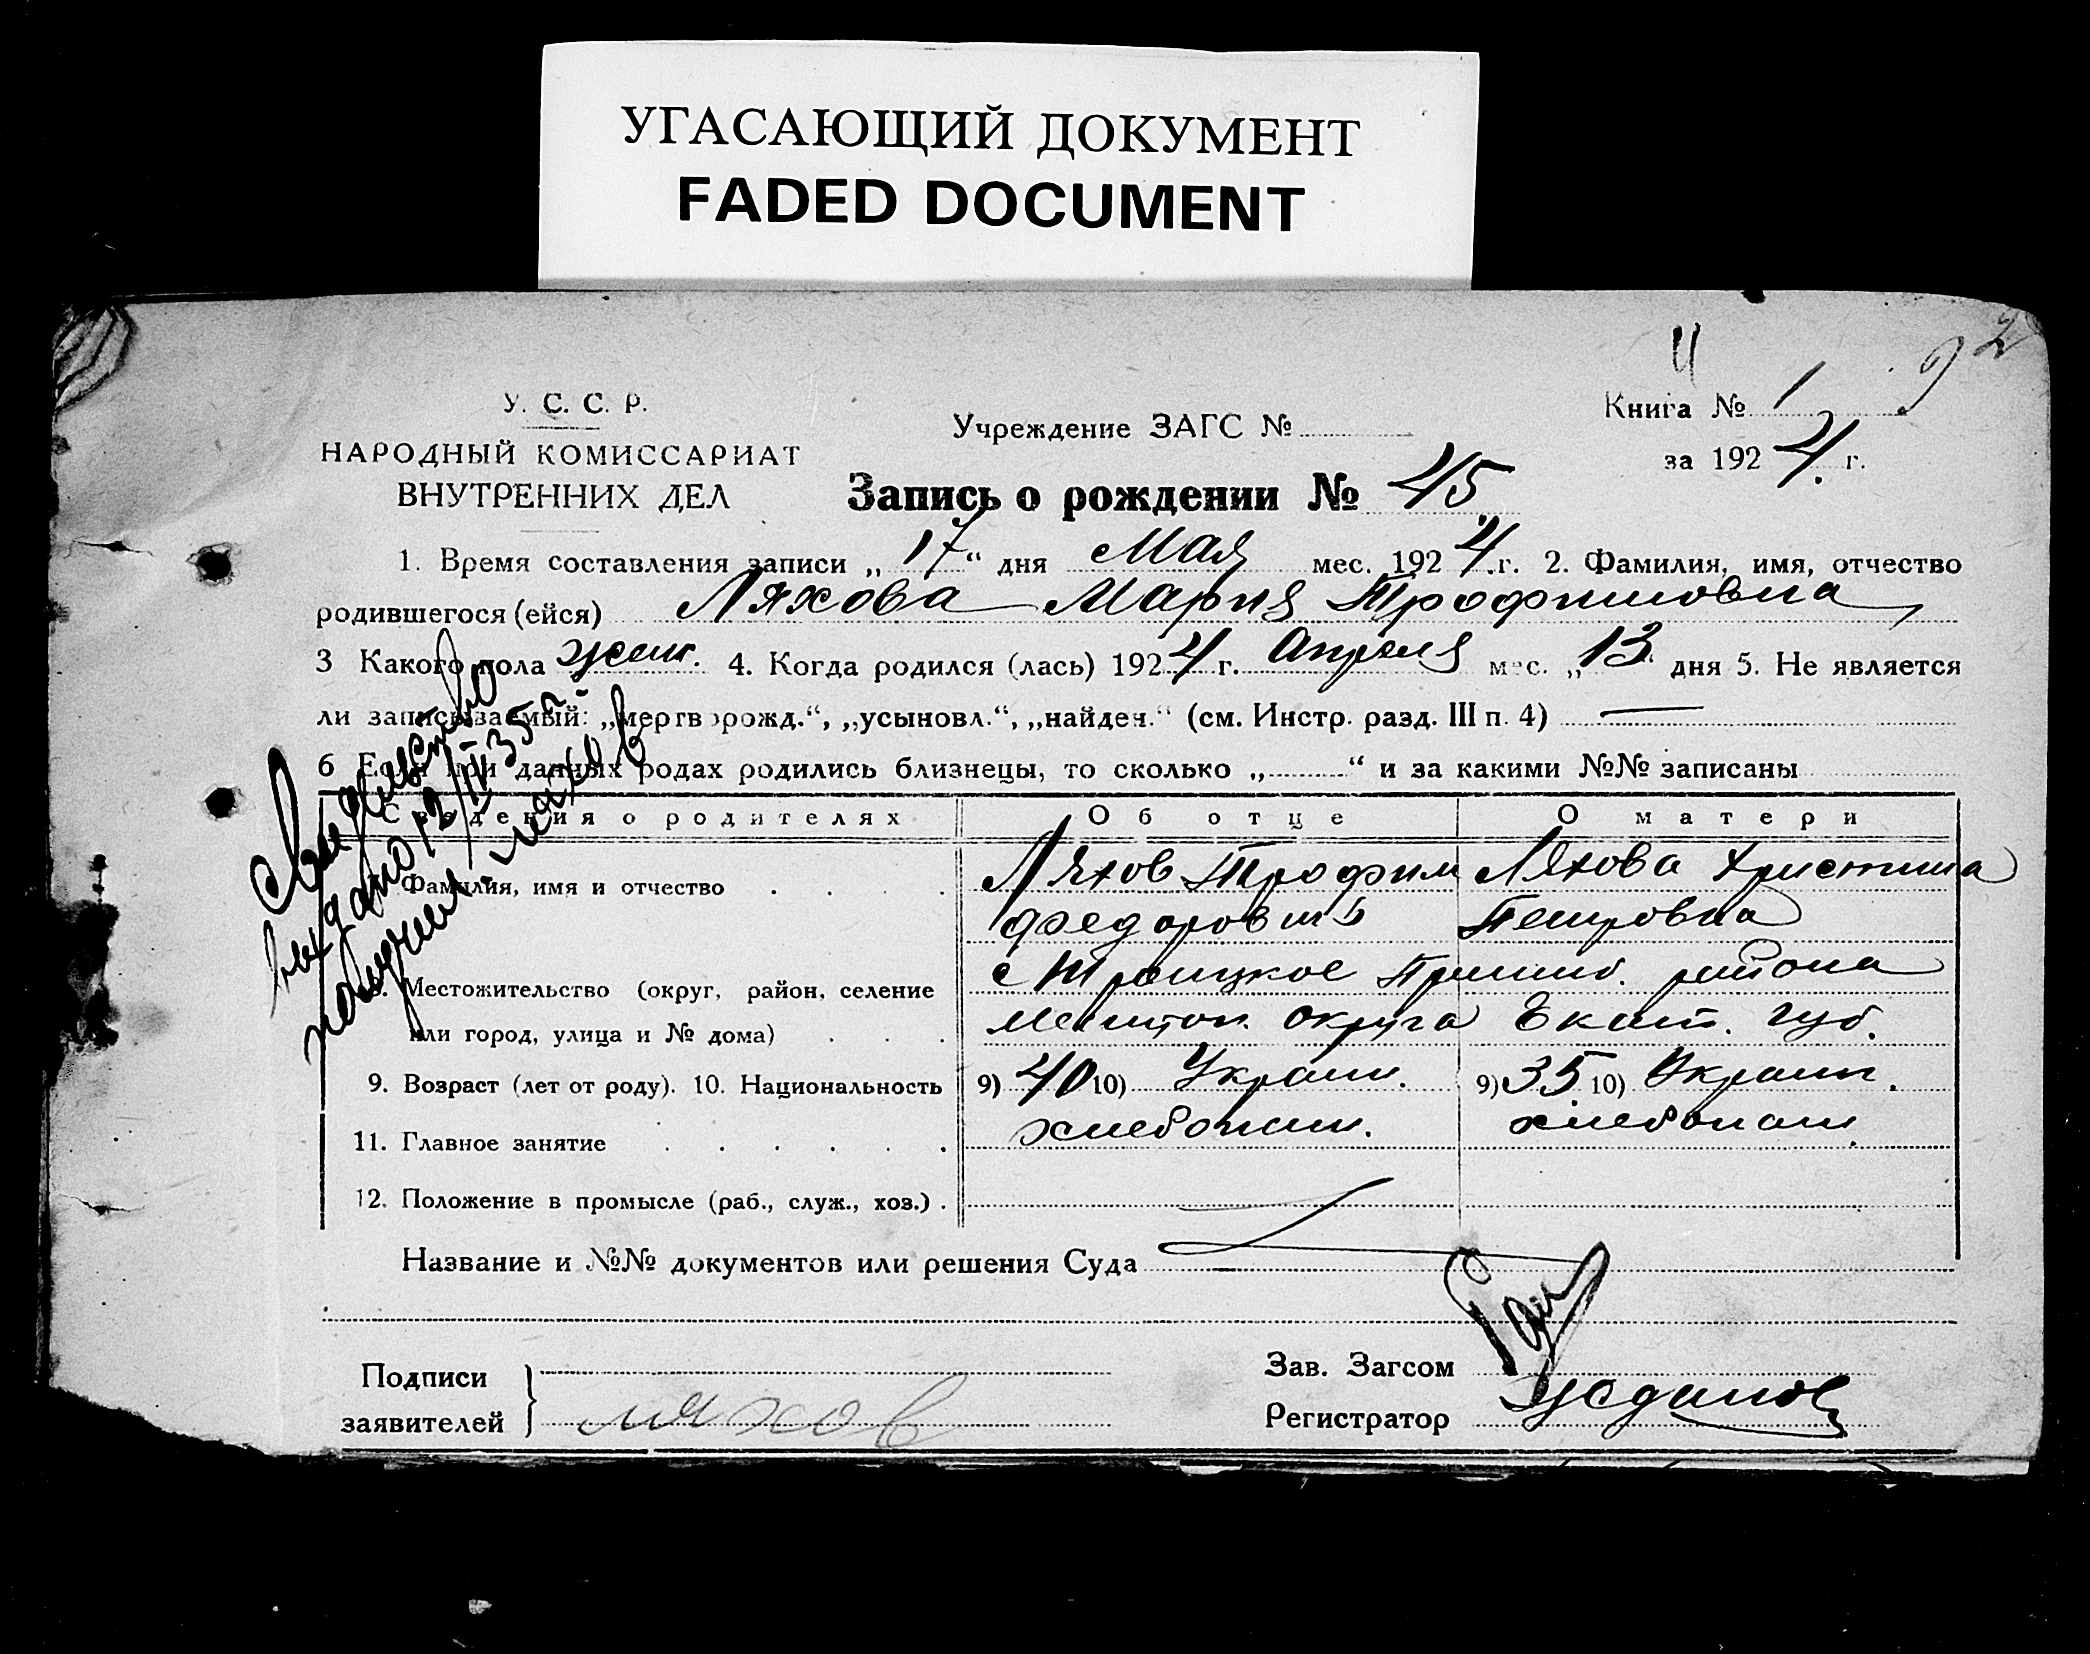 УГАСАЮЩИЙ ДОКУМЕНТ
FADED DOCUMENT
2
У. С. С. Р.
НАРОДНЫЙ КОМИССАРИАТ
ВНУТРЕННИХ ДЕЛ
Учреждение ЗАГС №
Книга № 1
за 1924 г.
Запись о рождении № 45
1. Время составления записи „17“ дня Мая мес. 1924 г. 2. Фамилия, имя, отчество
родившегося (ейся) Ляхова Мария Трофимовна
3 Какого пола жен. 4. Когда родился (лась) 1924 г. Апреля мес. „13“ дня 5. Не является
ли записываемый: „мертворожд.“, „усыновл.“, „найден.“ (см. Инстр. разд. III п. 4) —
6 Если при данных родах родились близнецы, то сколько „ “ и за какими №№ записаны
Свидетельство
выдано 12/IV 35 г.
получил Ляхов
Сведения о родителях Об отце О матери
Фамилия, имя и отчество Ляхов Трофим Ляхова Христина
Федоров Петровна
8. Местожительство (округ, район, селение с Троицкое Пришиб. района
или город, улица и № дома) Мелитоп. округа Екат. губ.
9. Возраст (лет от роду). 10. Национальность 9) 40 10) Украин. 9) 35 10) Украин.
11. Главное занятие хлебопаш. хлебопаш.
12. Положение в промысле (раб., служ., хоз.)
Название и №№ документов или решения Суда
Подписи
заявителей Ляхов
Зав. Загсом
Регистратор